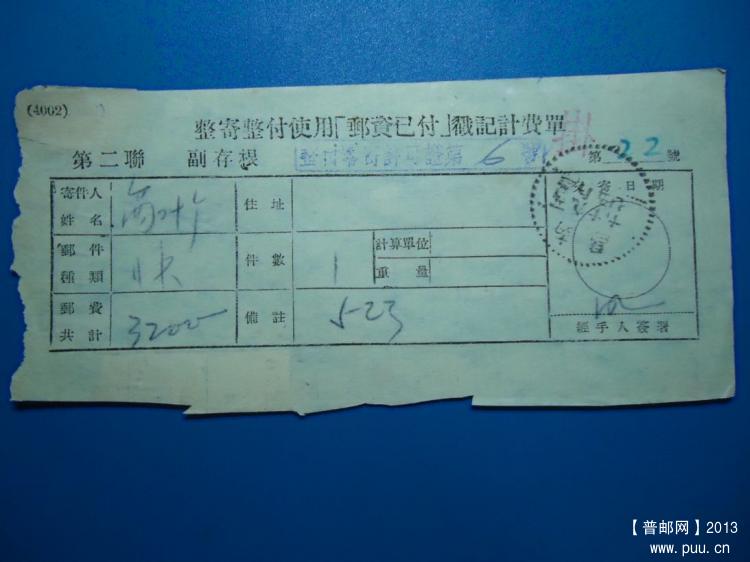 (4002)
整寄整付使用「郵資已付」戳記計費單
掛
第二聯 副存根
第 22 號
寄件人姓名 住址
交寄日期
郵件種類 快 件數 1 計算單位
重量
郵費共計 3200 備註 5-23
經手人簽署
【普邮网】2013
www.puu.cn